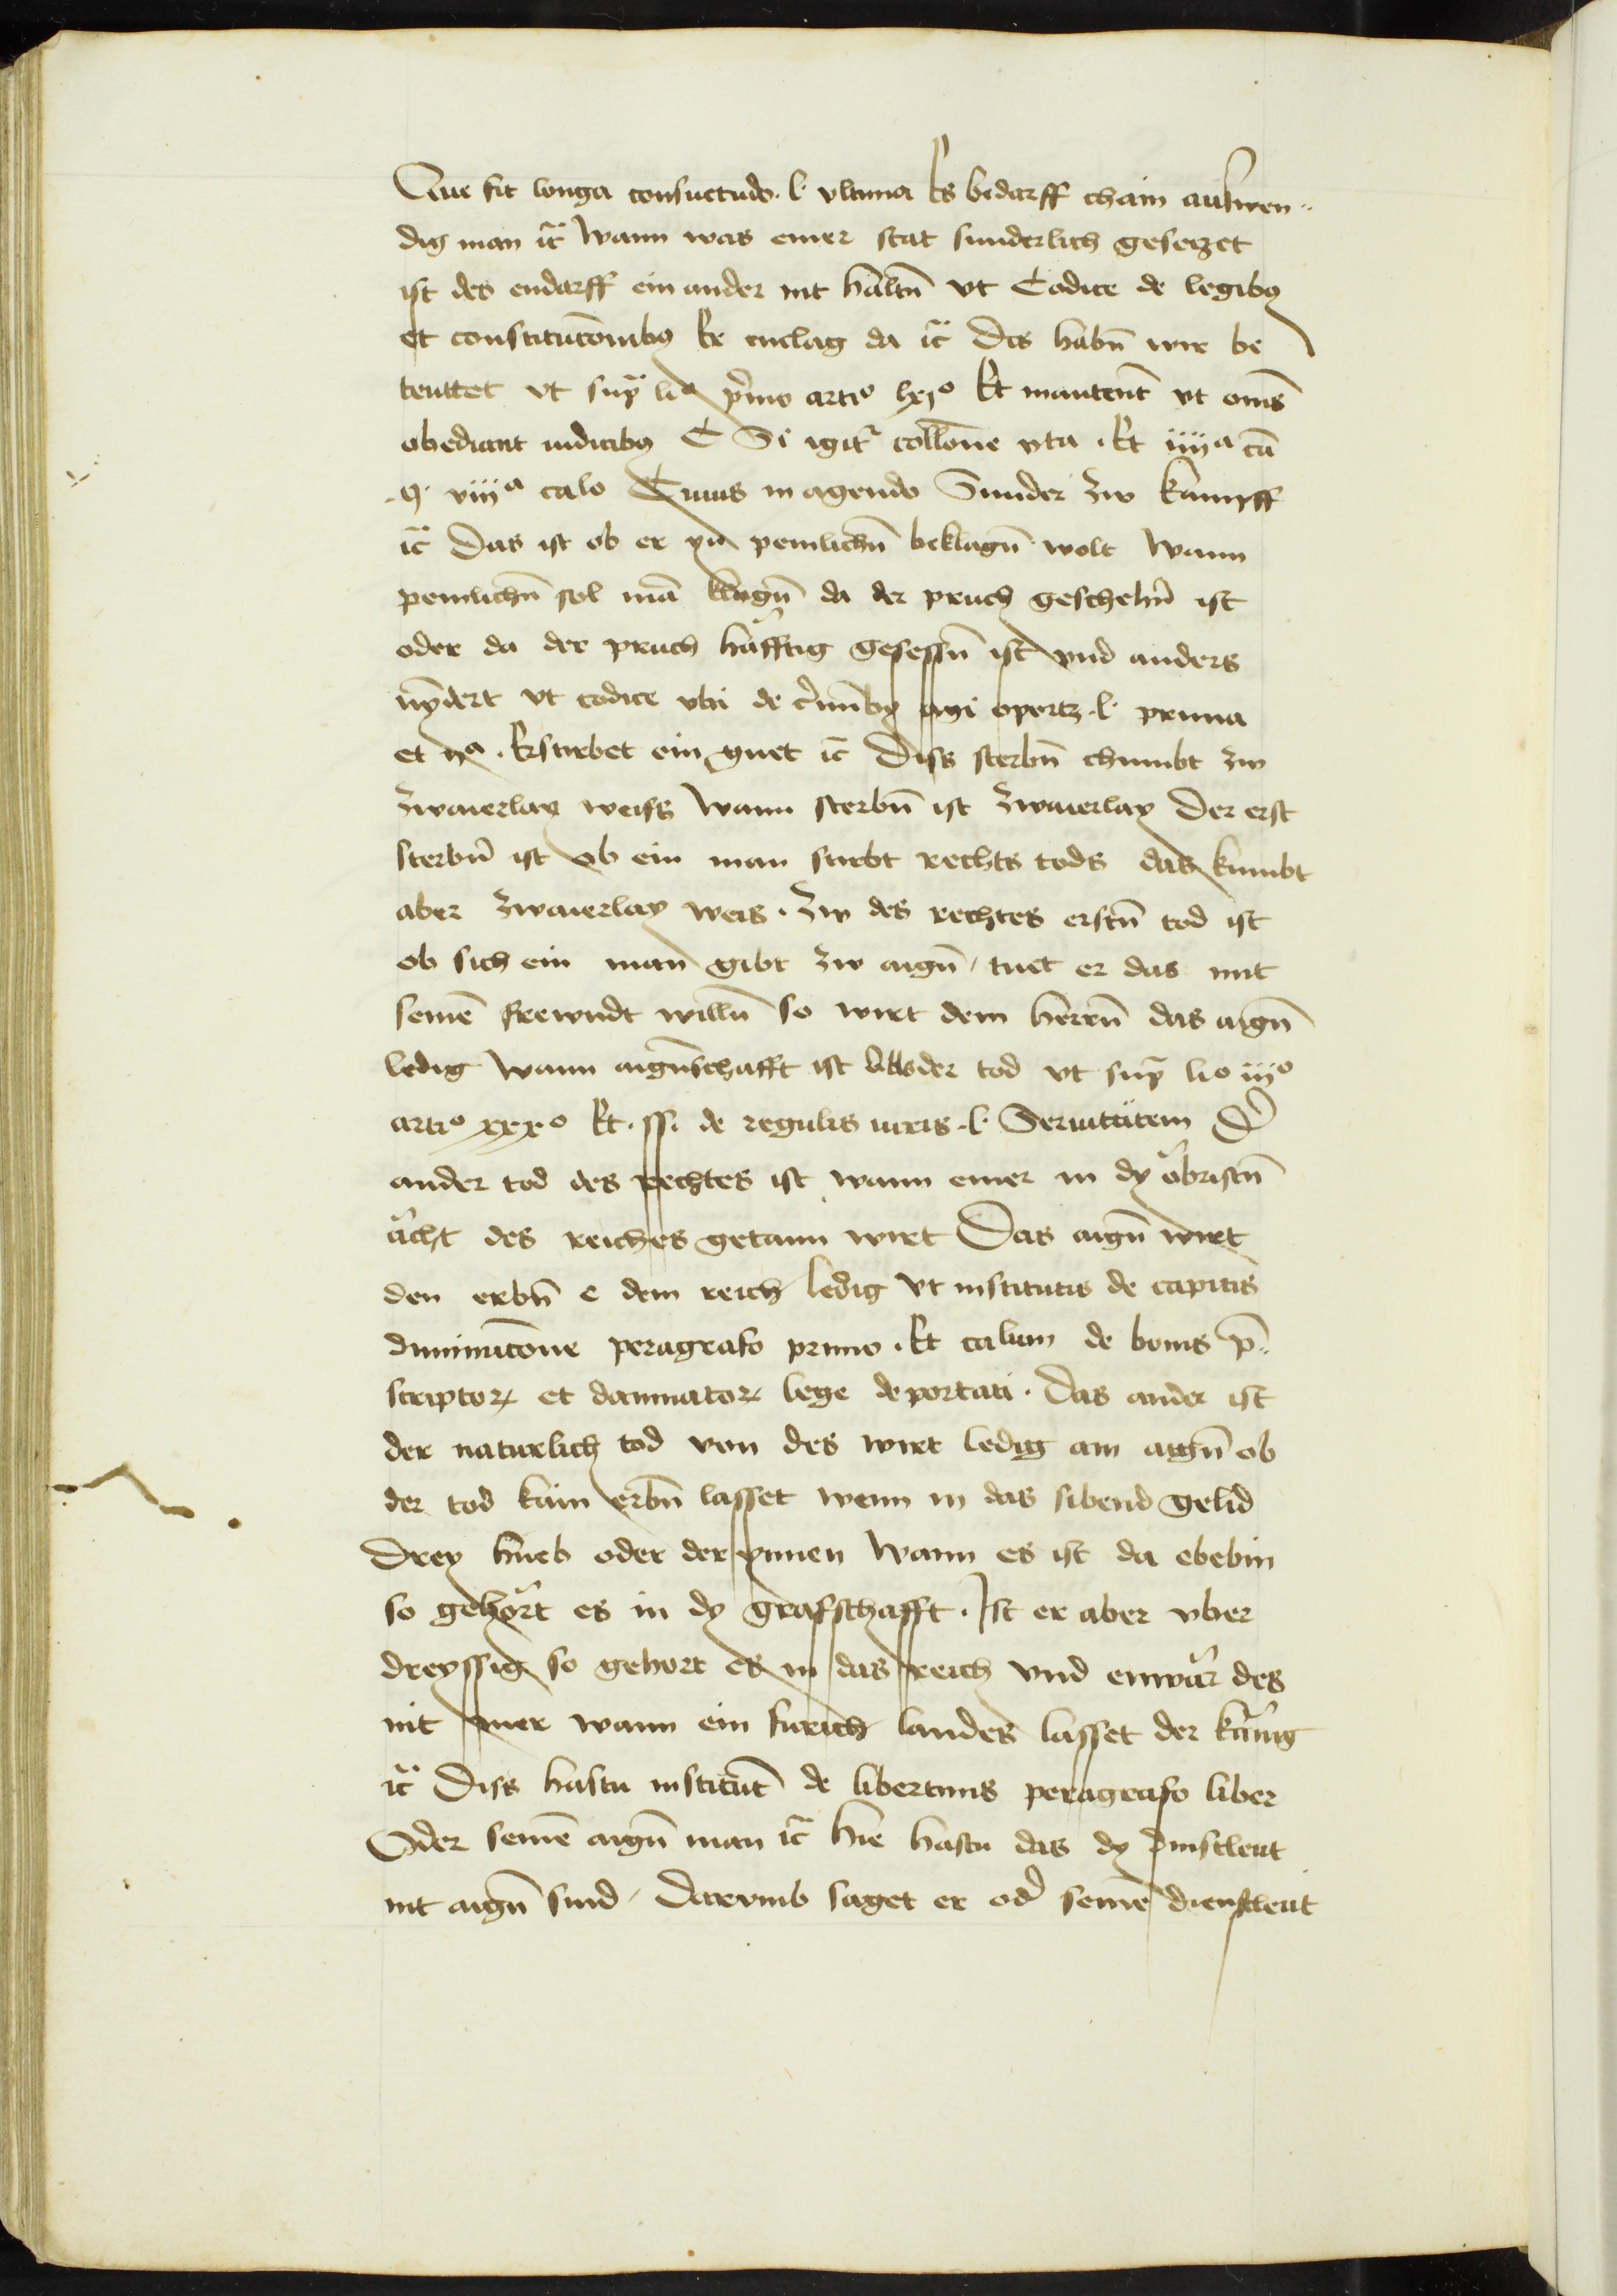 Que sit longa consuetudo · l· vltima Es bedarff chain auswen„
dig man ꝛc̃ Wann was einer stat sunderlich gesetzet
ist des endarff ein ander nit haltn̄ vt Codice de legibꝰ
et constitutōnibꝰ Er enclag da ꝛc̃ Des habn̄ wir be
teuttet vt supᷓ li° p̄mo arti° lxj° Et mantent̄ vt om̄s
obediant iudicibꝰ C Si igitᷣ coll̄one vta · Et iiijᵃ cā
·q· viijᵃ calo Cuius in agendo Sunder zw kampff
ꝛc̃ Das ist ob er yn̄ peinlichn̄ beklagn̄ wolt Wann
peinlichn̄ sol mā klagn̄ da der pruch geschehn̄ ist
oder da der pruch häfftig gesessn̄ ist vnd anders
nyn̄dert vt codice vbi de c̄im̄bꝰ agi oportꝫ ·l· prima
et ijᵃ · Erstirbet ein guet ꝛc̃ Diss sterbn̄ chumbt zw
zwaierlay weiss Wann sterbn̄ ist zwaierlay Der erst
sterbn̄ ist ob ein man stirbt rechts tods das kumbt
aber zwaierlay weis · Zw des rechtes erstn̄ tod ist
ob sich ein man gibt zw aign̄ / tuet er das mit
seinē frewndt willn̄ so wirt dem herrn̄ das aign̄
ledig Wann aignschafft ist als der tod vt supᷓ li° iij°
arti° xxx° Et · ff· de regulis iuris ·l· Seruitutem D̓
ander tod des rechtes ist wann einer in dy öbristn̄
ächt des reiches getann wirt Das aign̄ wirt
den erbn̄ e dem reich ledig vt institutis de capitis
diminucōne peragrafo primo · Et calum de bonis p̄„
scriptoꝝ et damnatoꝝ lege deportati · Das ander ist
der naturlich tod von des wirt ledig am aign̄ ob
der tod kain erbn̄ lasset wenn in das sibend gelid
Drey hueb oder der ynnen Wann es ist da ebebin
so gehört es in dy grafschafft · Ist er aber vber
dreyssig so gehort es in das reich vnd enwär des
nit mer wann ein furich landes lasset der künig
ꝛc̃ Diss hastu institut̄ de libertinis peragrafo liber
Oder seinē aign̄ man ꝛc̃ Hie hastu das dy dinstleut
nit aign̄ sind / Darvmb saget er od̓ seinē dienstleut